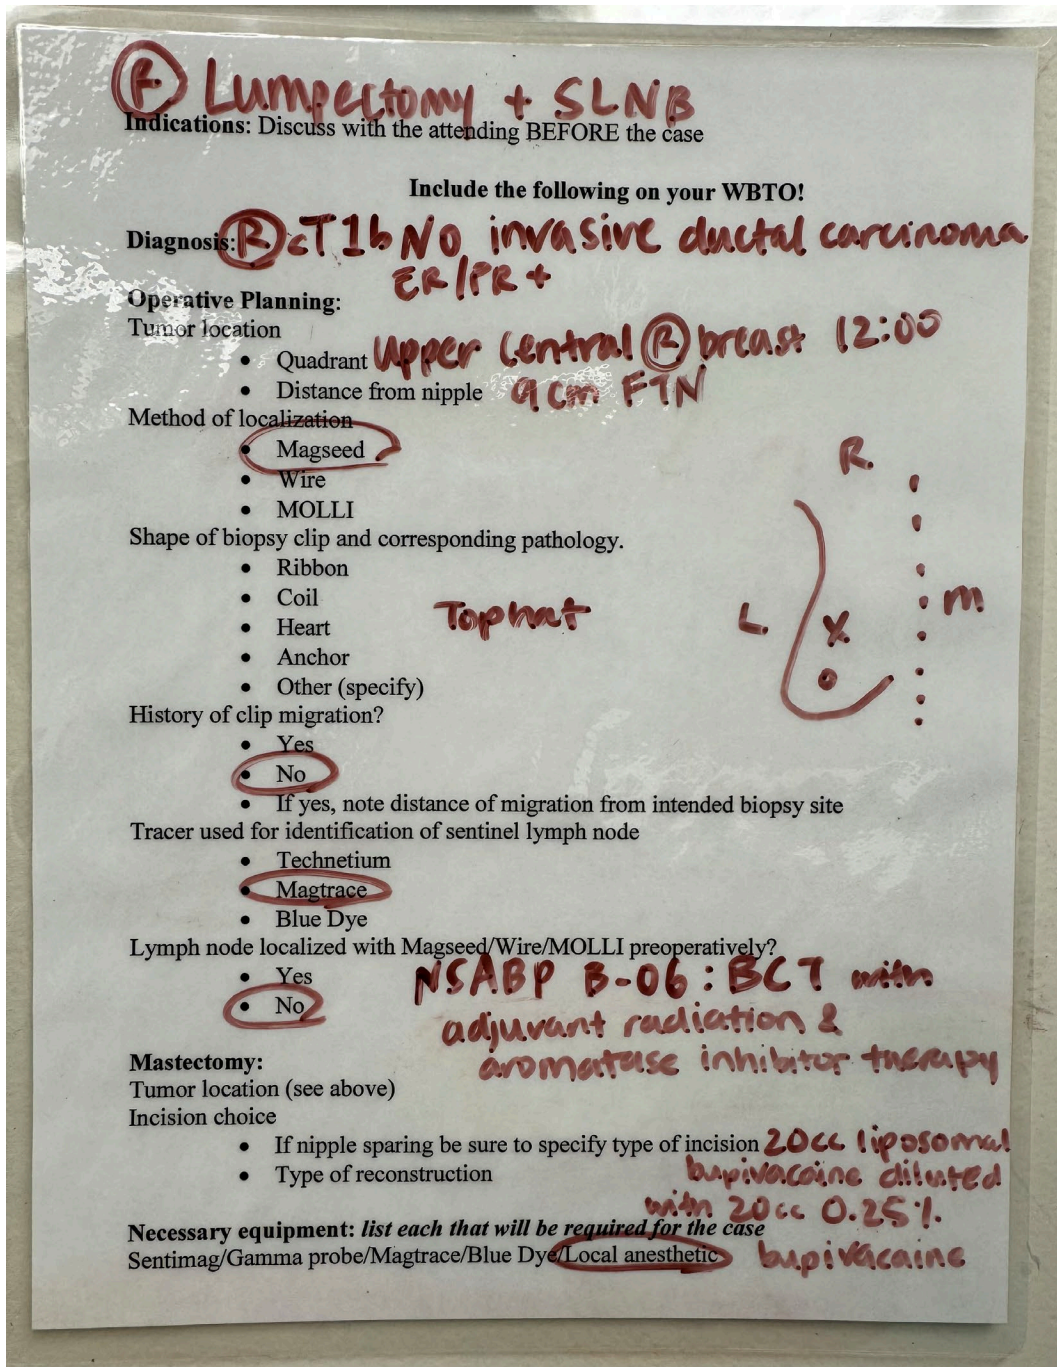 Ⓡ Lumpectomy + SLNB
Indications: Discuss with the attending BEFORE the case
Include the following on your WBTO!
Diagnosis: Ⓡ cT1bN0 invasive ductal carcinoma
ER/PR +
Operative Planning:
Tumor location
• Quadrant Upper Central Ⓡ breast 12:00
• Distance from nipple 9cm FTN
Method of localization
• Magseed
• Wire
• MOLLI
Shape of biopsy clip and corresponding pathology.
• Ribbon
• Coil
• Heart
• Anchor
• Other (specify)
Tophat
R.
L.
X
m
History of clip migration?
• Yes
• No
• If yes, note distance of migration from intended biopsy site
Tracer used for identification of sentinel lymph node
• Technetium
• Magtrace
• Blue Dye
Lymph node localized with Magseed/Wire/MOLLI preoperatively?
• Yes
• No
NSABP B-06: BCT with
adjuvant radiation &
aromatase inhibitor therapy
Mastectomy:
Tumor location (see above)
Incision choice
• If nipple sparing be sure to specify type of incision
• Type of reconstruction
20cc liposomal
bupivacaine diluted
with 20cc 0.25%
bupivacaine
Necessary equipment: list each that will be required for the case
Sentimag/Gamma probe/Magtrace/Blue Dye/Local anesthetic